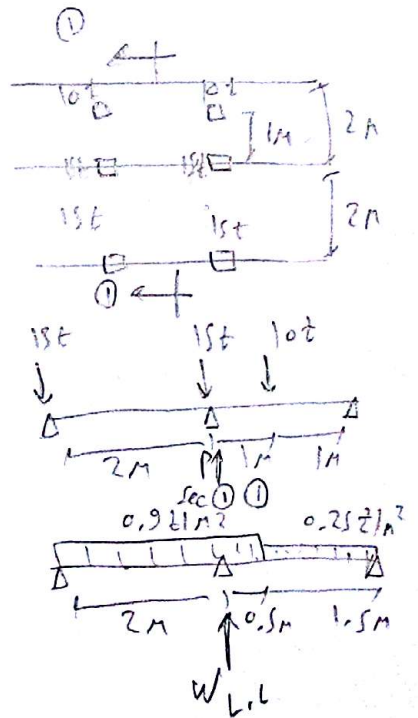 ①
10t 10t
1M 2M
15t 15t
15t 15t 2M
①
15t 15t 10t
2M 1M 1M
Sec ① ①
0.9t/m2 0.25t/m²
2M 0.5M 1.5M
W L.L